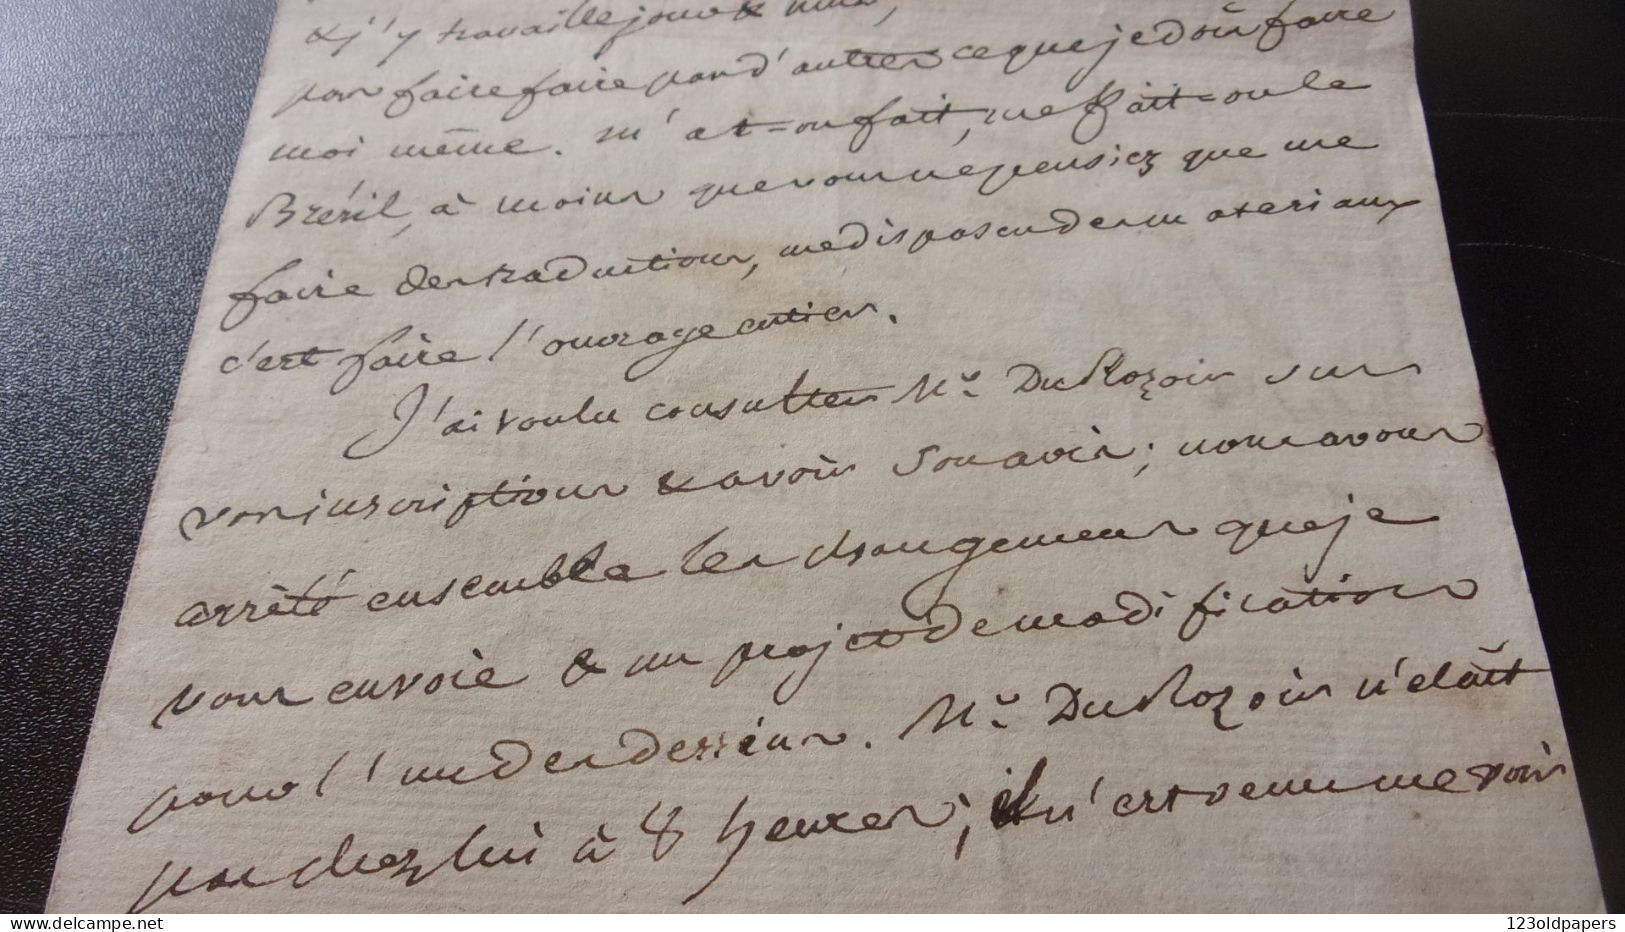 & j'y travaille jour & nuit,
pas faire faire par d'autres ce que je dois faire
moi même. m'a-t-on fait, me fait-on le
Brésil, à moins que vous ne pensiez que me
faire des traductions, me disposer des materiaux
c'est faire l'ouvrage entier.
J'ai voulu consulter Mr. Du Rozoir sur
vos inscriptions & avoir son avis; nous avons
arrêté ensemble les changemens que je
vous envoie & un projet de modification
pour l'un des dessins. Mr. Du Rozoir n'etait
pas chez lui à 8 heures; il n'est venu me voir
123oldpapers